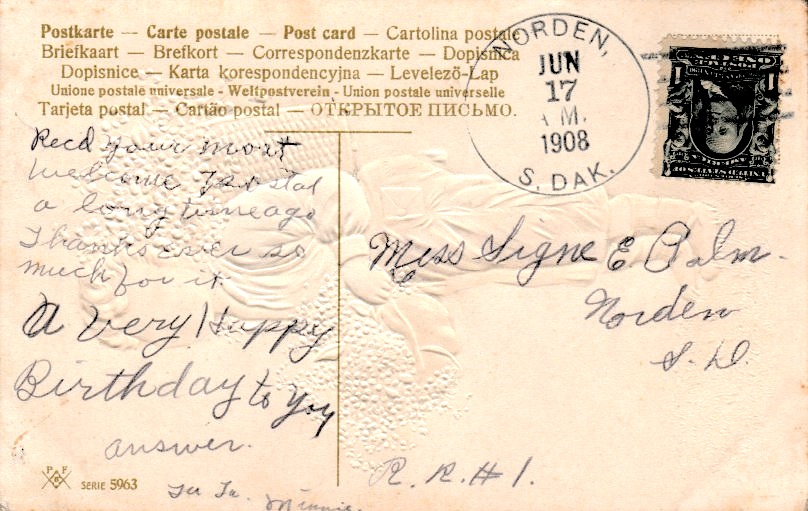 Postkarte — Carte postale — Post card — Cartolina postale
Briefkaart — Brefkort — Correspondenzkarte — Dopisnica
Dopisnice — Karta korespondencyjna — Levelező-Lap
Unione postale universale - Weltpostverein - Union postale universelle
Tarjeta postal — Cartão postal — ОТКРЫТОЕ ПИСЬМО.
NORDEN,
JUN
17
A M.
1908
S. DAK.
UNITED STATES OF
AMERICA
1 1
POSTAGE
ONE CENT
Recd your most
welcome Postal
a long time ago
Thanks ever so
much for it
A Very Happy
Birthday to You
answer.
Minnie.
Miss Signe E. Palm.
Norden
S. D.
R. R. # 1.
P F
SERIE 5963